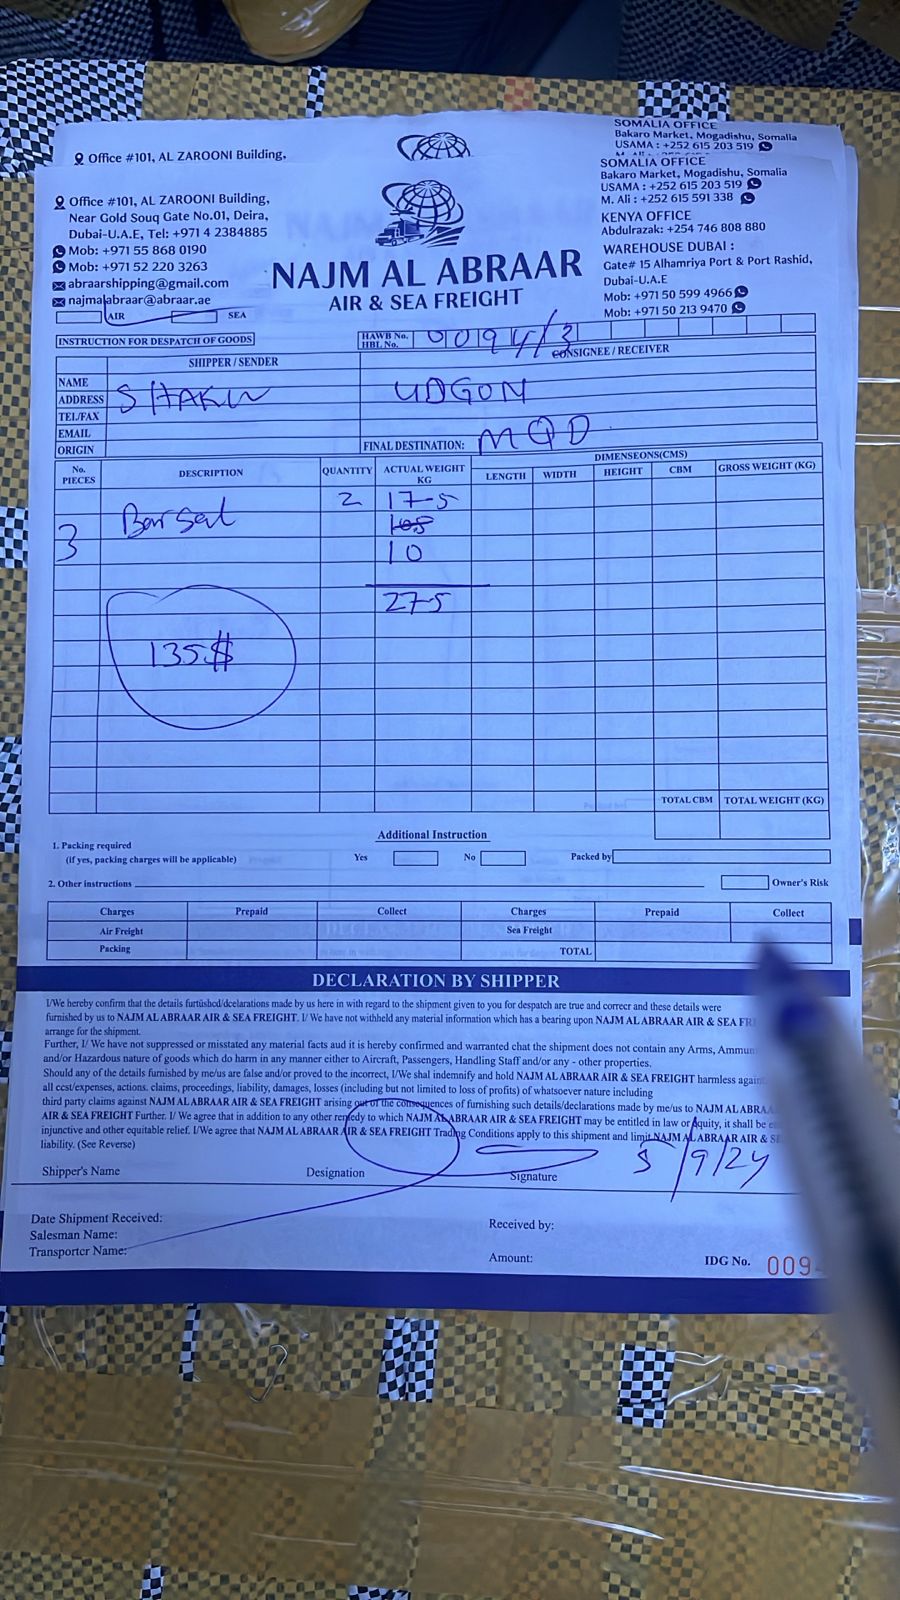 Office #101, AL ZAROONI Building,
SOMALIA OFFICE
Bakaro Market, Mogadishu, Somalia
USAMA : +252 615 203 519
Office #101, AL ZAROONI Building,
Near Gold Souq Gate No.01, Deira,
Dubai-U.A.E, Tel: +971 4 2384885
Mob: +971 55 868 0190
Mob: +971 52 220 3263
abraarshipping@gmail.com
najmalabraar@abraar.ae
NAJM AL ABRAAR
AIR & SEA FREIGHT
SOMALIA OFFICE
Bakaro Market, Mogadishu, Somalia
USAMA : +252 615 203 519
M. Ali : +252 615 591 338
KENYA OFFICE
Abdulrazak: +254 746 808 880
WAREHOUSE DUBAI :
Gate# 15 Alhamriya Port & Port Rashid,
Dubai-U.A.E
Mob: +971 50 599 4966
Mob: +971 50 213 9470
AIR SEA
INSTRUCTION FOR DESPATCH OF GOODS
HAWB No.
HBL No. 0094/3
SHIPPER / SENDER CONSIGNEE / RECEIVER
NAME
ADDRESS SHAKUR UDGON
TEL/FAX
EMAIL
ORIGIN FINAL DESTINATION: MQD
No. PIECES DESCRIPTION QUANTITY ACTUAL WEIGHT KG DIMENSEONS(CMS) GROSS WEIGHT (KG)
LENGTH WIDTH HEIGHT CBM
2 17-5
3 10
27-5
135$
TOTAL CBM TOTAL WEIGHT (KG)
Additional Instruction
1. Packing required
(if yes, packing charges will be applicable) Yes No Packed by
2. Other instructions Owner's Risk
Charges Prepaid Collect Charges Prepaid Collect
Air Freight Sea Freight
Packing TOTAL
DECLARATION BY SHIPPER
I/We hereby confirm that the details furtüshcd/dcelarations made by us here in with regard to the shipment given to you for despatch are true and correcr and these details were
furnished by us to NAJM AL ABRAAR AIR & SEA FREIGHT. I/ We have not withheld any material information which has a bearing upon NAJM AL ABRAAR AIR & SEA FR
arrange for the shipment.
Further, I/ We have not suppressed or misstated any material facts aud it is hereby confirmed and warranted chat the shipment does not contain any Arms, Ammun
and/or Hazardous nature of goods which do harm in any manner either to Aircraft, Passengers, Handling Staff and/or any - other properties.
Should any of the details furnished by me/us are false and/or proved to the incorrect, I/We shal indemnify and hold NAJM AL ABRAAR AIR & SEA FREIGHT harmless again
all ccst/expenses, actions. claims, proceedings, liability, damages, losses (including but not limited to loss of profits) of whatsoever nature including
third party claims against NAJM AL ABRAAR AIR & SEA FREIGHT arising out of the consequences of furnishing such details/declarations made by me/us to NAJM AL ABRA
AIR & SEA FREIGHT Further. I/ We agree that in addition to any other remedy to which NAJM AL ABRAAR AIR & SEA FREIGHT may be entitled in law or Aquity, it shall be
injunctive and other equitable relief. I/We agree that NAJM AL ABRAAR AIR & SEA FREIGHT Trading Conditions apply to this shipment and limit NAJM AL ABRAAR AIR & S
liability. (See Reverse)
5/9/24
Shipper's Name Designation Signature
Date Shipment Received: Received by:
Salesman Name:
Transportcr Name: Amount: IDG No. 009